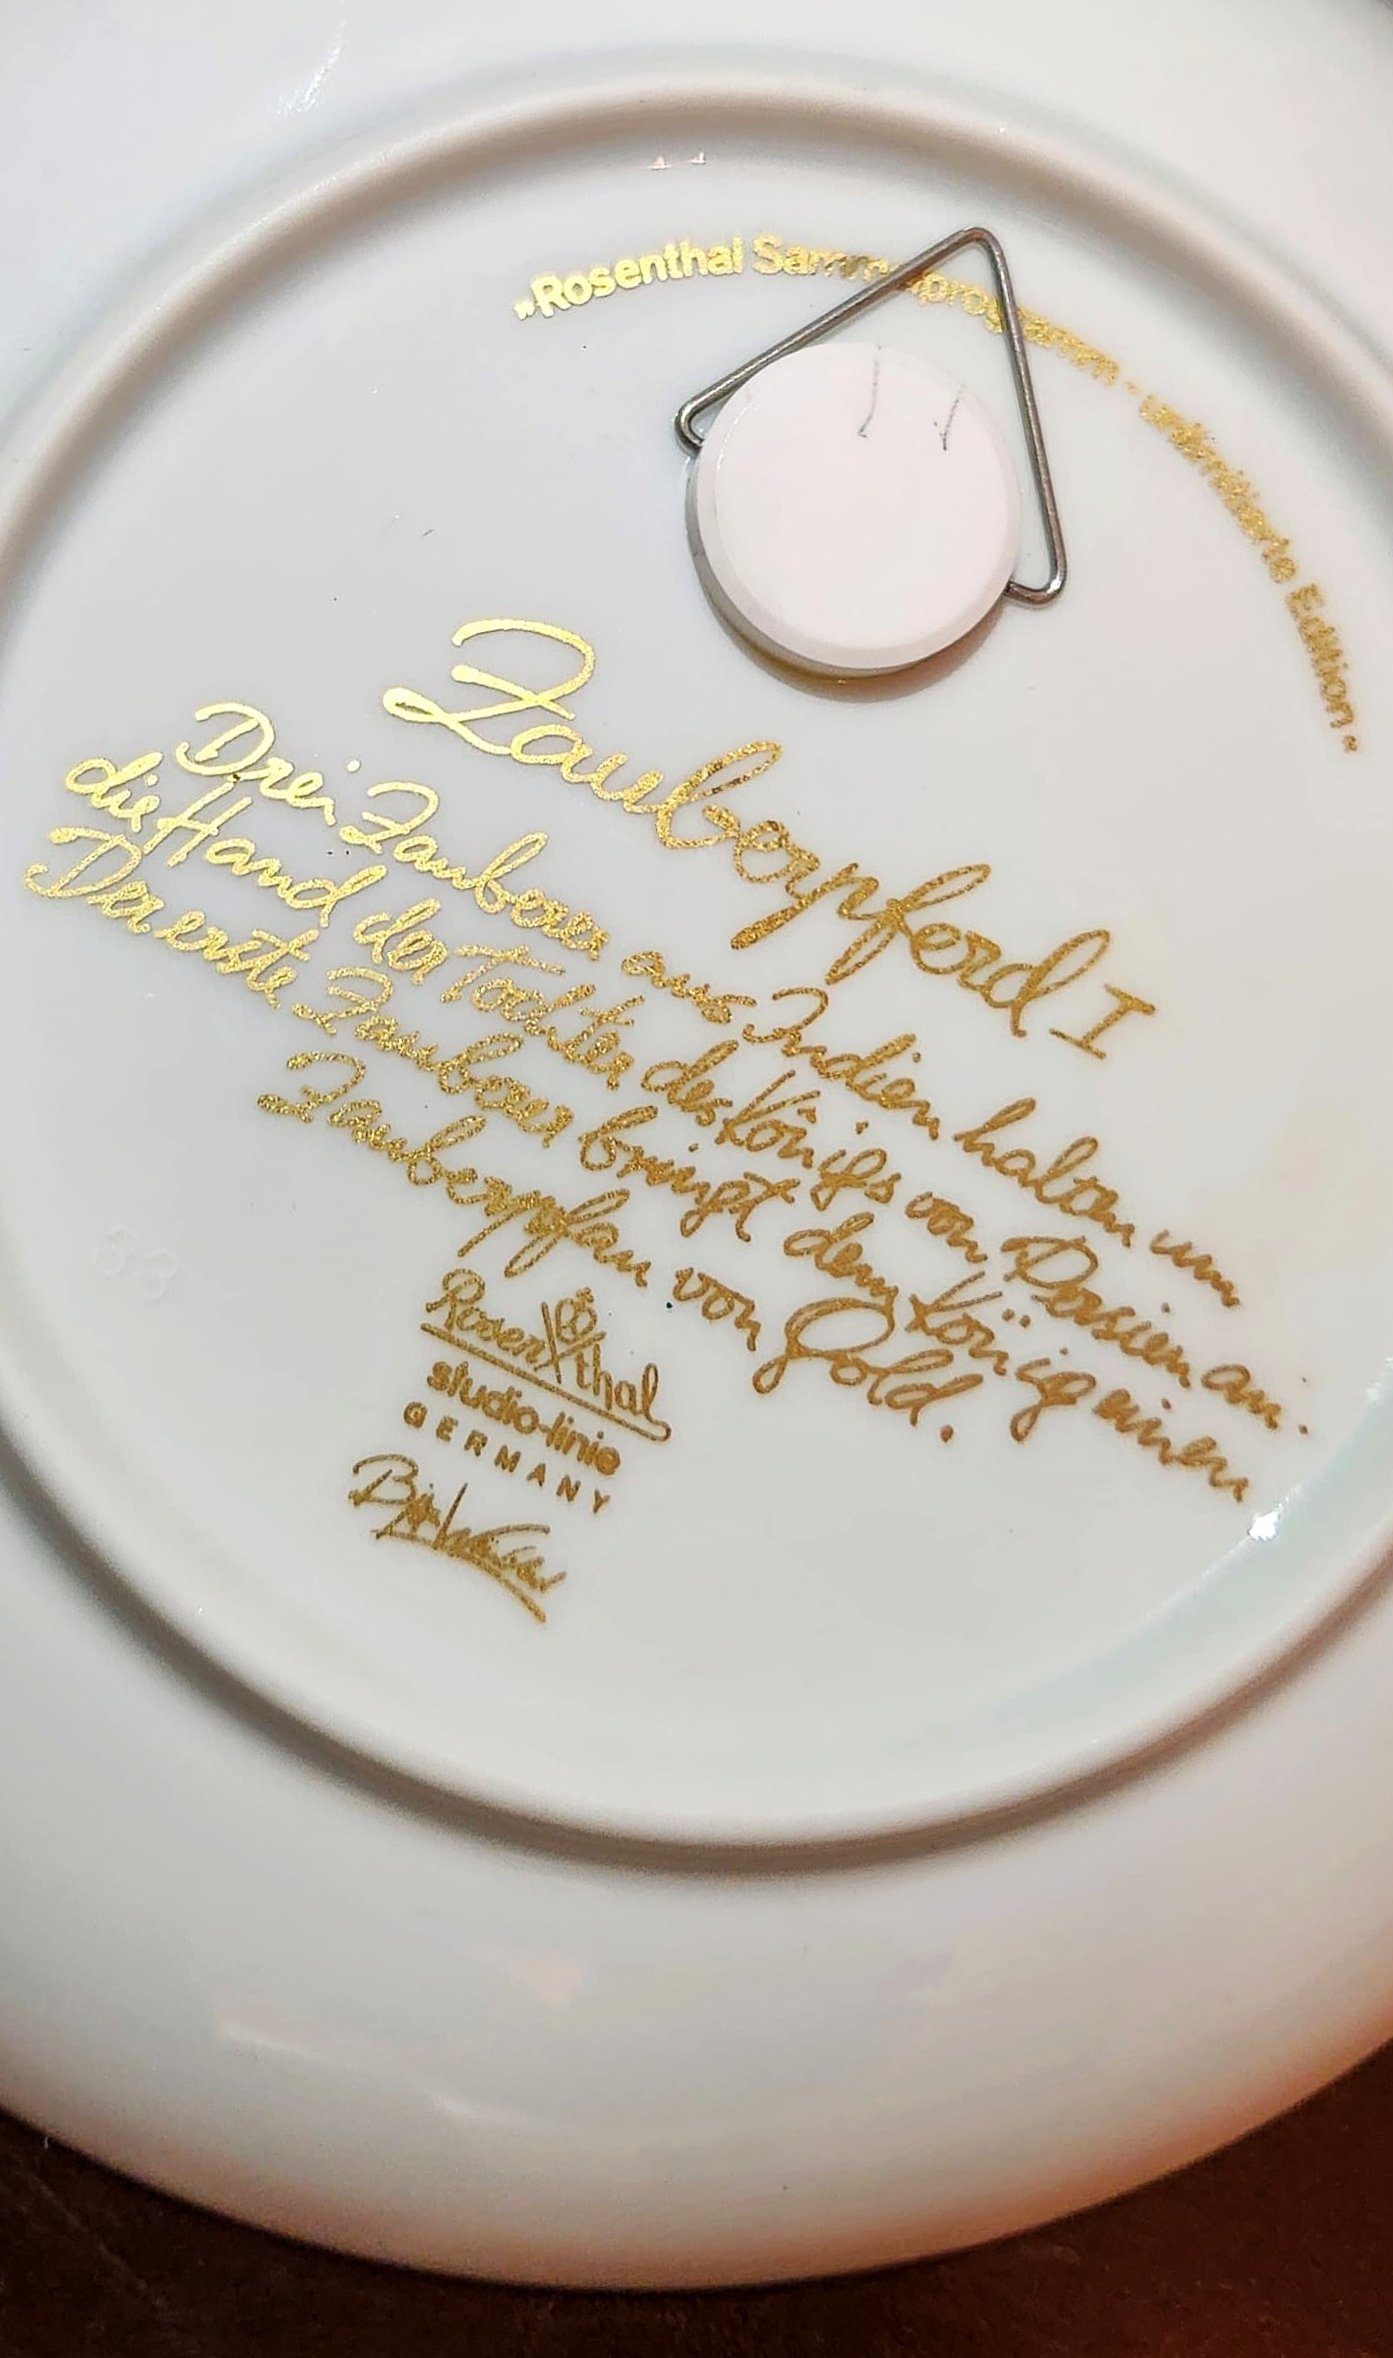 „Rosenthal Sammelprogramm - unlimitierte Edition“
Zauberpferd I
Drei Zauberer aus Indien halten um
die Hand der Tochter des Königs von Persien an.
Der erste Zauberer bringt dem König einen
Zauberpfau von Gold.
Rosenthal
studio-linie
GERMANY